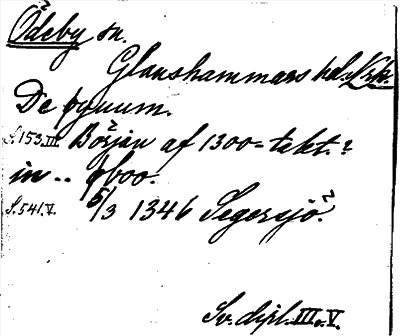 Ödeby sn.
Glanshammars hd. Krk.
De fynum.
S.153.III. Början af 1300-talet.?
in .. ǿboo.
S.541.V. 15/3 1346 Segersjö.
Sv. dipl. III o. V.